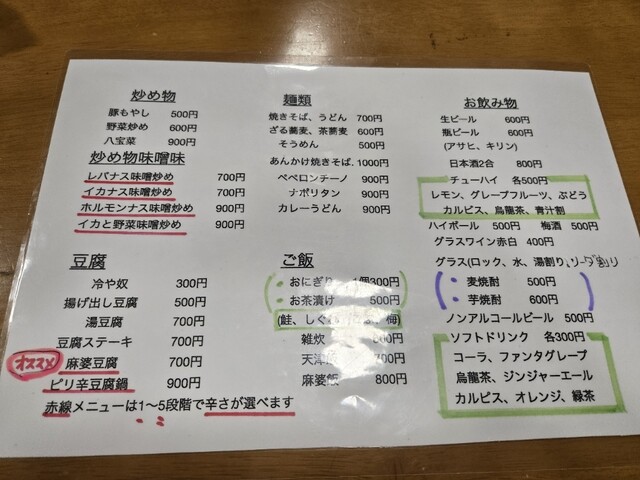 炒め物
豚もやし 500円
野菜炒め 600円
八宝菜 900円
炒め物味噌味
レバナス味噌炒め 700円
イカナス味噌炒め 700円
ホルモンナス味噌炒め 900円
イカと野菜味噌炒め 900円
豆腐
冷や奴 300円
揚げ出し豆腐 500円
湯豆腐 700円
豆腐ステーキ 700円
オススメ 麻婆豆腐 700円
ピリ辛豆腐鍋 900円
赤線メニューは1〜5段階で辛さが選べます
麺類
焼きそば、うどん 700円
ざる蕎麦、茶蕎麦 600円
そうめん 500円
あんかけ焼きそば、1000円
ペペロンチーノ 900円
ナポリタン 900円
カレーうどん 900円
ご飯
おにぎり 1個300円
お茶漬け 500円
(鮭、しぐ 梅)
雑炊 円
天津 円
麻婆飯 800円
お飲み物
生ビール 600円
瓶ビール 600円
(アサヒ、キリン)
日本酒2合 800円
チューハイ 各500円
レモン、グレープフルーツ、ぶどう
カルピス、烏龍茶、青汁割
ハイボール 500円 梅酒 500円
グラスワイン赤白 400円
グラス(ロック、水、湯割り、ソーダ割り
麦焼酎 500円
芋焼酎 600円
ノンアルコールビール 500円
ソフトドリンク 各300円
コーラ、ファンタグレープ
烏龍茶、ジンジャーエール
カルピス、オレンジ、緑茶